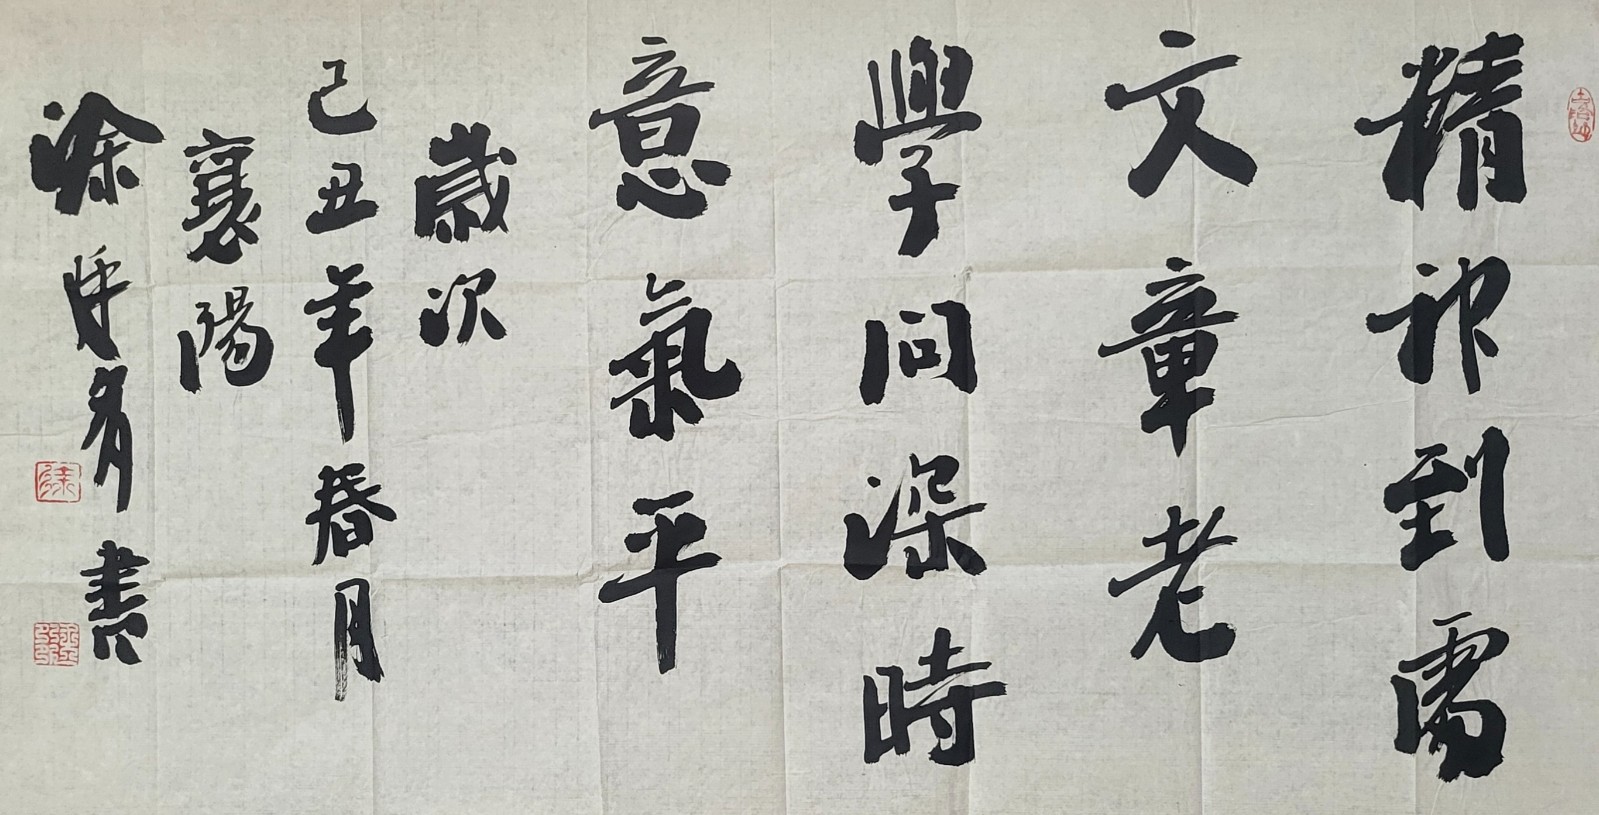 精神到處
文章老
學問深時
意氣平
歲次
己丑年春月
襄陽
涂
書